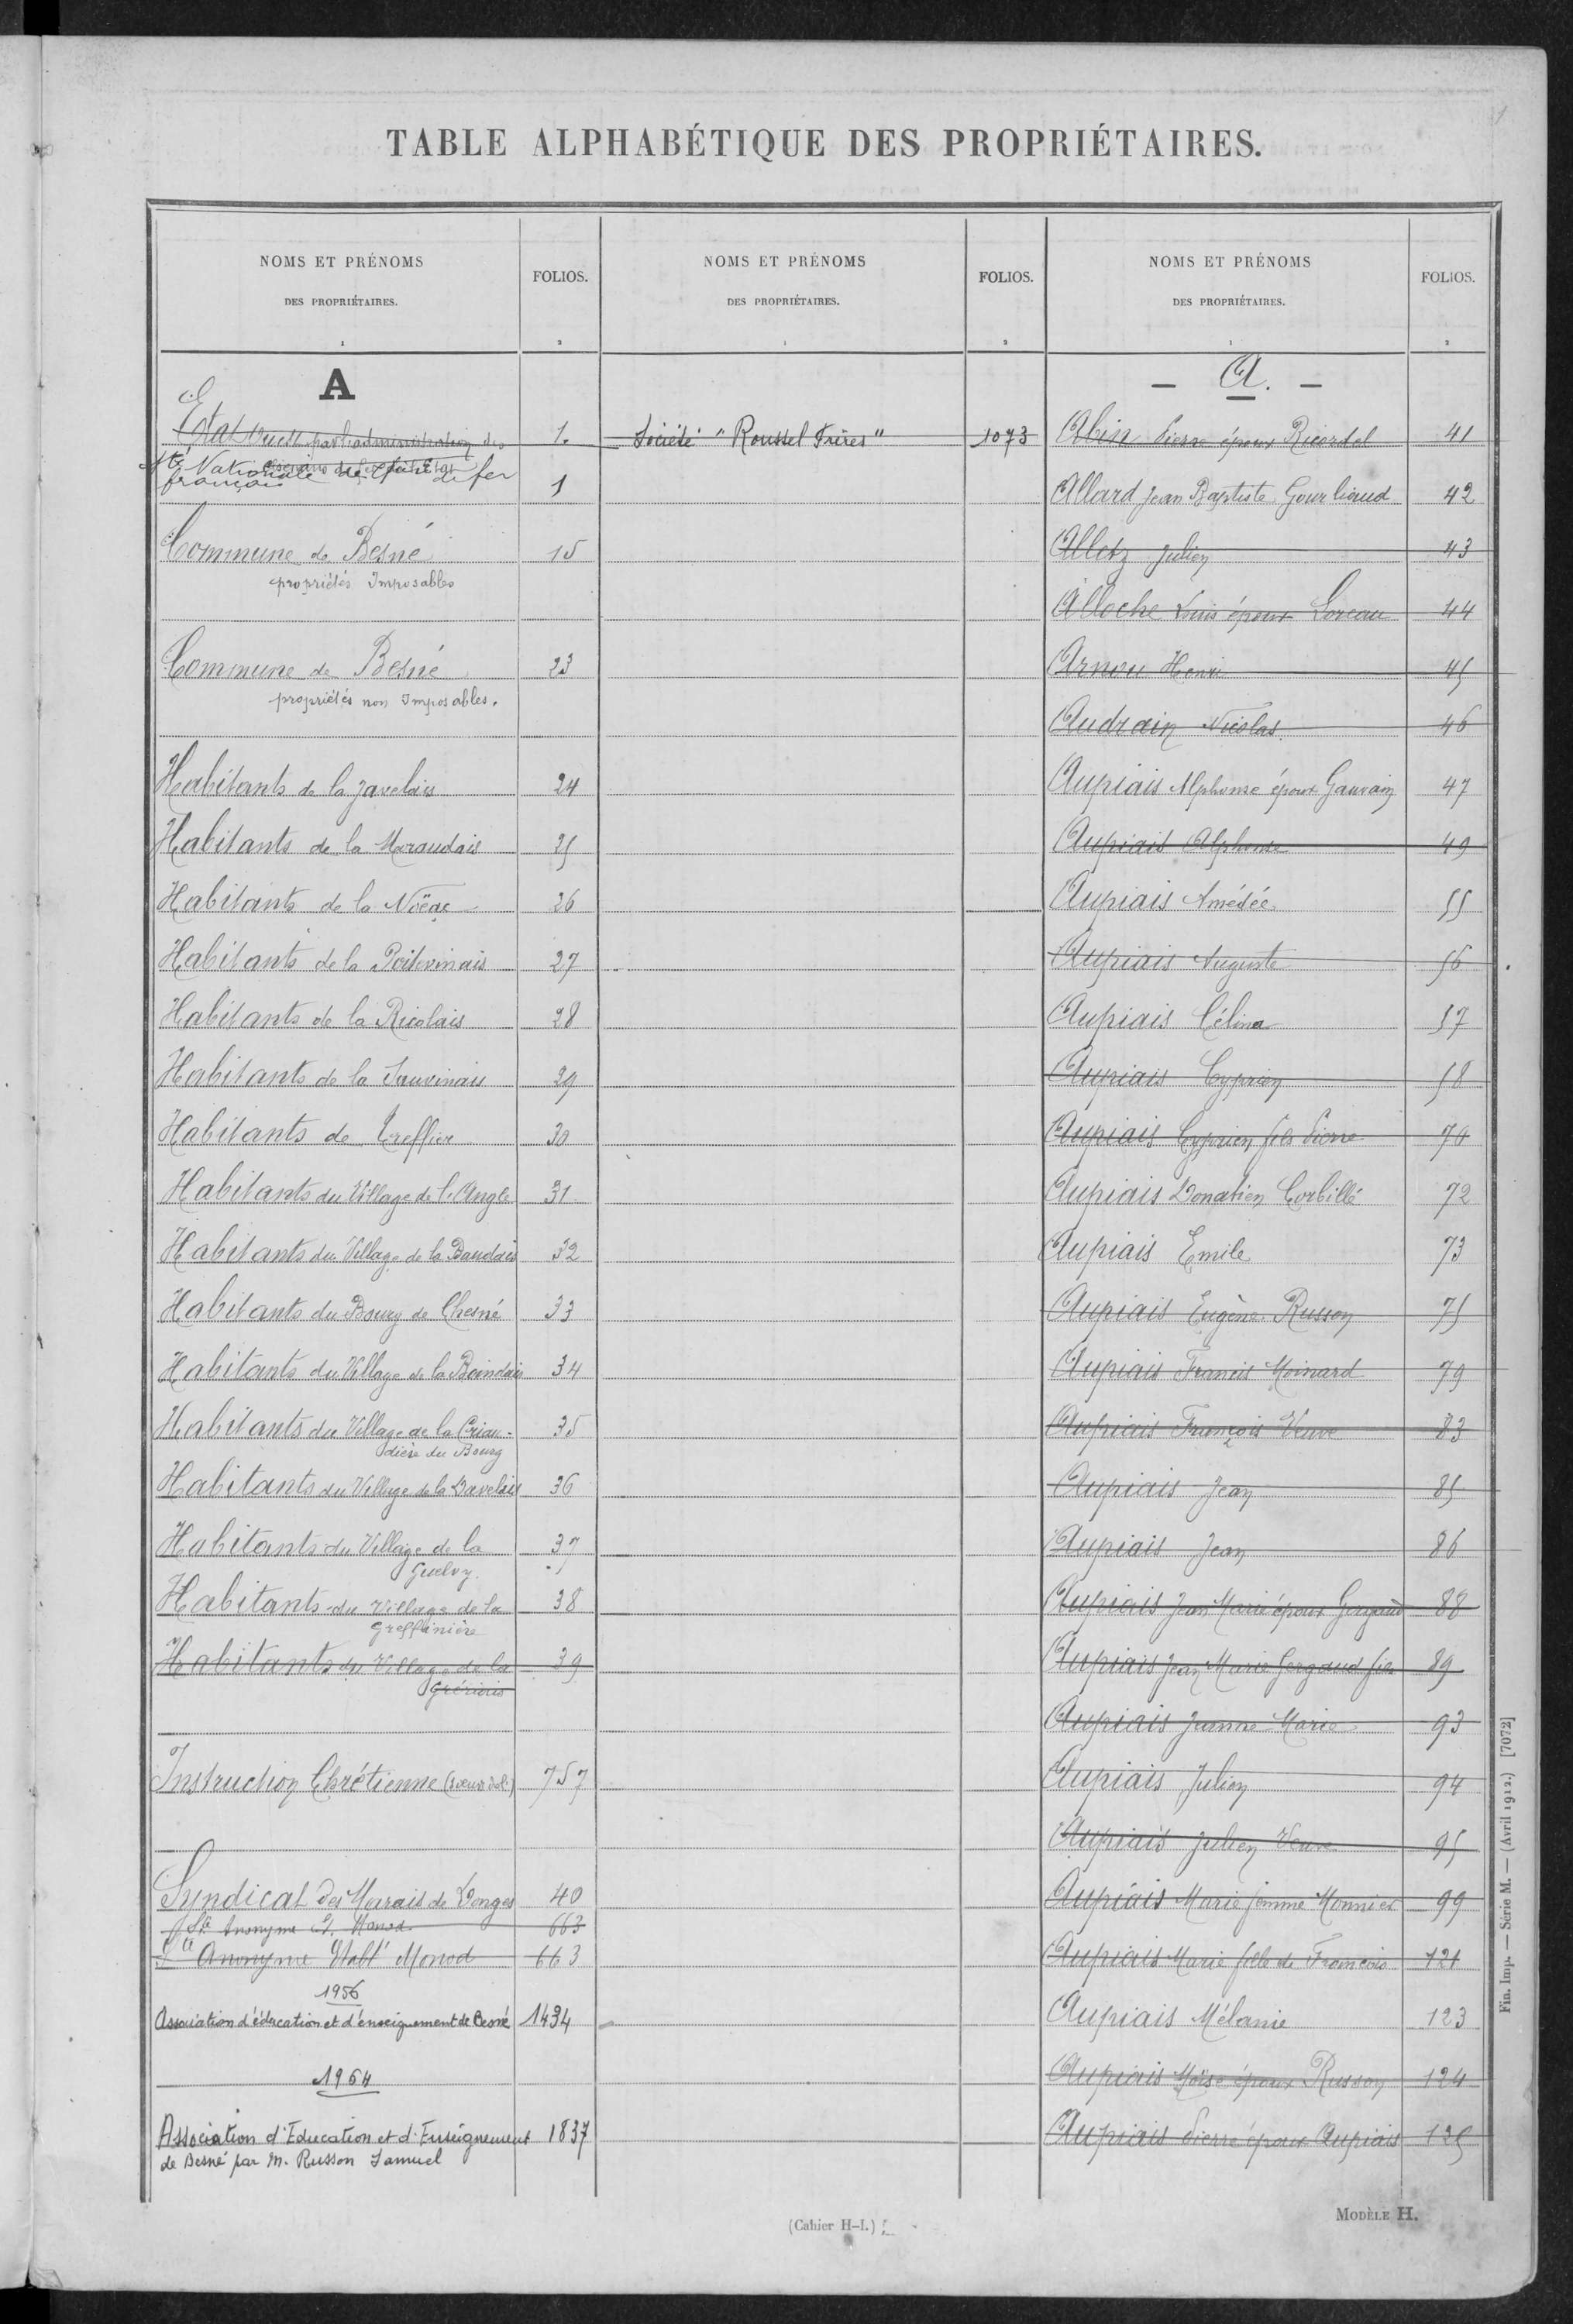 1
TABLE ALPHABÉTIQUE DES PROPRIÉTAIRES.
NOMS ET PRÉNOMS
DES PROPRIÉTAIRES.
FOLIOS.
1
2
A
Etat Ouest par l'administration des 1.
Sté Nationale des chemins de fer
français 1
Commune de Besné 15
propriétés Imposables
Commune de Besné 23
propriétés non Imposables.
Habitants de la Javelais 24
Habitants de la Maraudais 25
Habitants de la Noëae 26
Habitants de la Poitevinais 27
Habitants de la Ricolais 28
Habitants de la Sauvinais 29
Habitants de Treffieu 30
Habitants du Village de l'Angle 31
Habitants du Village de la Baudais 32
Habitants du Bourg de Chesné 33
Habitants du Village de la Boindais 34
Habitants du Village de la Criau-
dière du Bourg 35
Habitants du Village de la Davelais 36
Habitants du Village de la 37
Guelvy
Habitants du Village de la 38
Greffinière
Habitants du Village de la 39
Instruction Chrétienne 757
Syndicat des Marais de Donges 40
Sté Anonyme Et. Monod 663
Sté Anonyme Etabt Monod 663
1956
Association d'éducation et d'enseignement de Besné 1434
1964
Association d'Education et d'Enseignement 1837
de Besné par M. Russon Samuel
NOMS ET PRÉNOMS
DES PROPRIÉTAIRES.
FOLIOS.
1
2
Société "Roussel Frères" 1073
NOMS ET PRÉNOMS
DES PROPRIÉTAIRES.
FOLIOS.
1
2
- A. -
Abin Pierre époux Ricordel 41
Allard Jean Baptiste Gourhaud 42
Alletz Julien 43
Alloche Louis époux Loreau 44
Arnou Henri 45
Audrain Nicolas 46
Aupiais Alphonse époux Gauvain 47
Aupiais Alphonse 49
Aupiais Amédée 55
Aupiais Auguste 56
Aupiais Célina 57
Aupiais Cyprien 58
Aupiais Cyprien fils Pierre 70
Aupiais Donatien Corbillé 72
Aupiais Emile 73
Aupiais Eugène Russon 75
Aupiais Francis Moinard 79
Aupiais François Veuve 83
Aupiais Jean 85
Aupiais Jean 86
Aupiais Jean Marie époux Gergaud 88
Aupiais Jean Marie Gergaud fils 89
Aupiais Jeanne Marie 93
Aupiais Julien 94
Aupiais Julien Veuve 95
Aupiais Marie femme Monnier 99
Aupiais Marie fille de François 121
Aupiais Mélanie 123
Aupiais Moïse époux Russon 124
Aupiais Pierre époux Aupiais 125
Fin. Imp. — Série M. — (Avril 1912.) [7072]
(Cahier H-I.)
MODÈLE H.